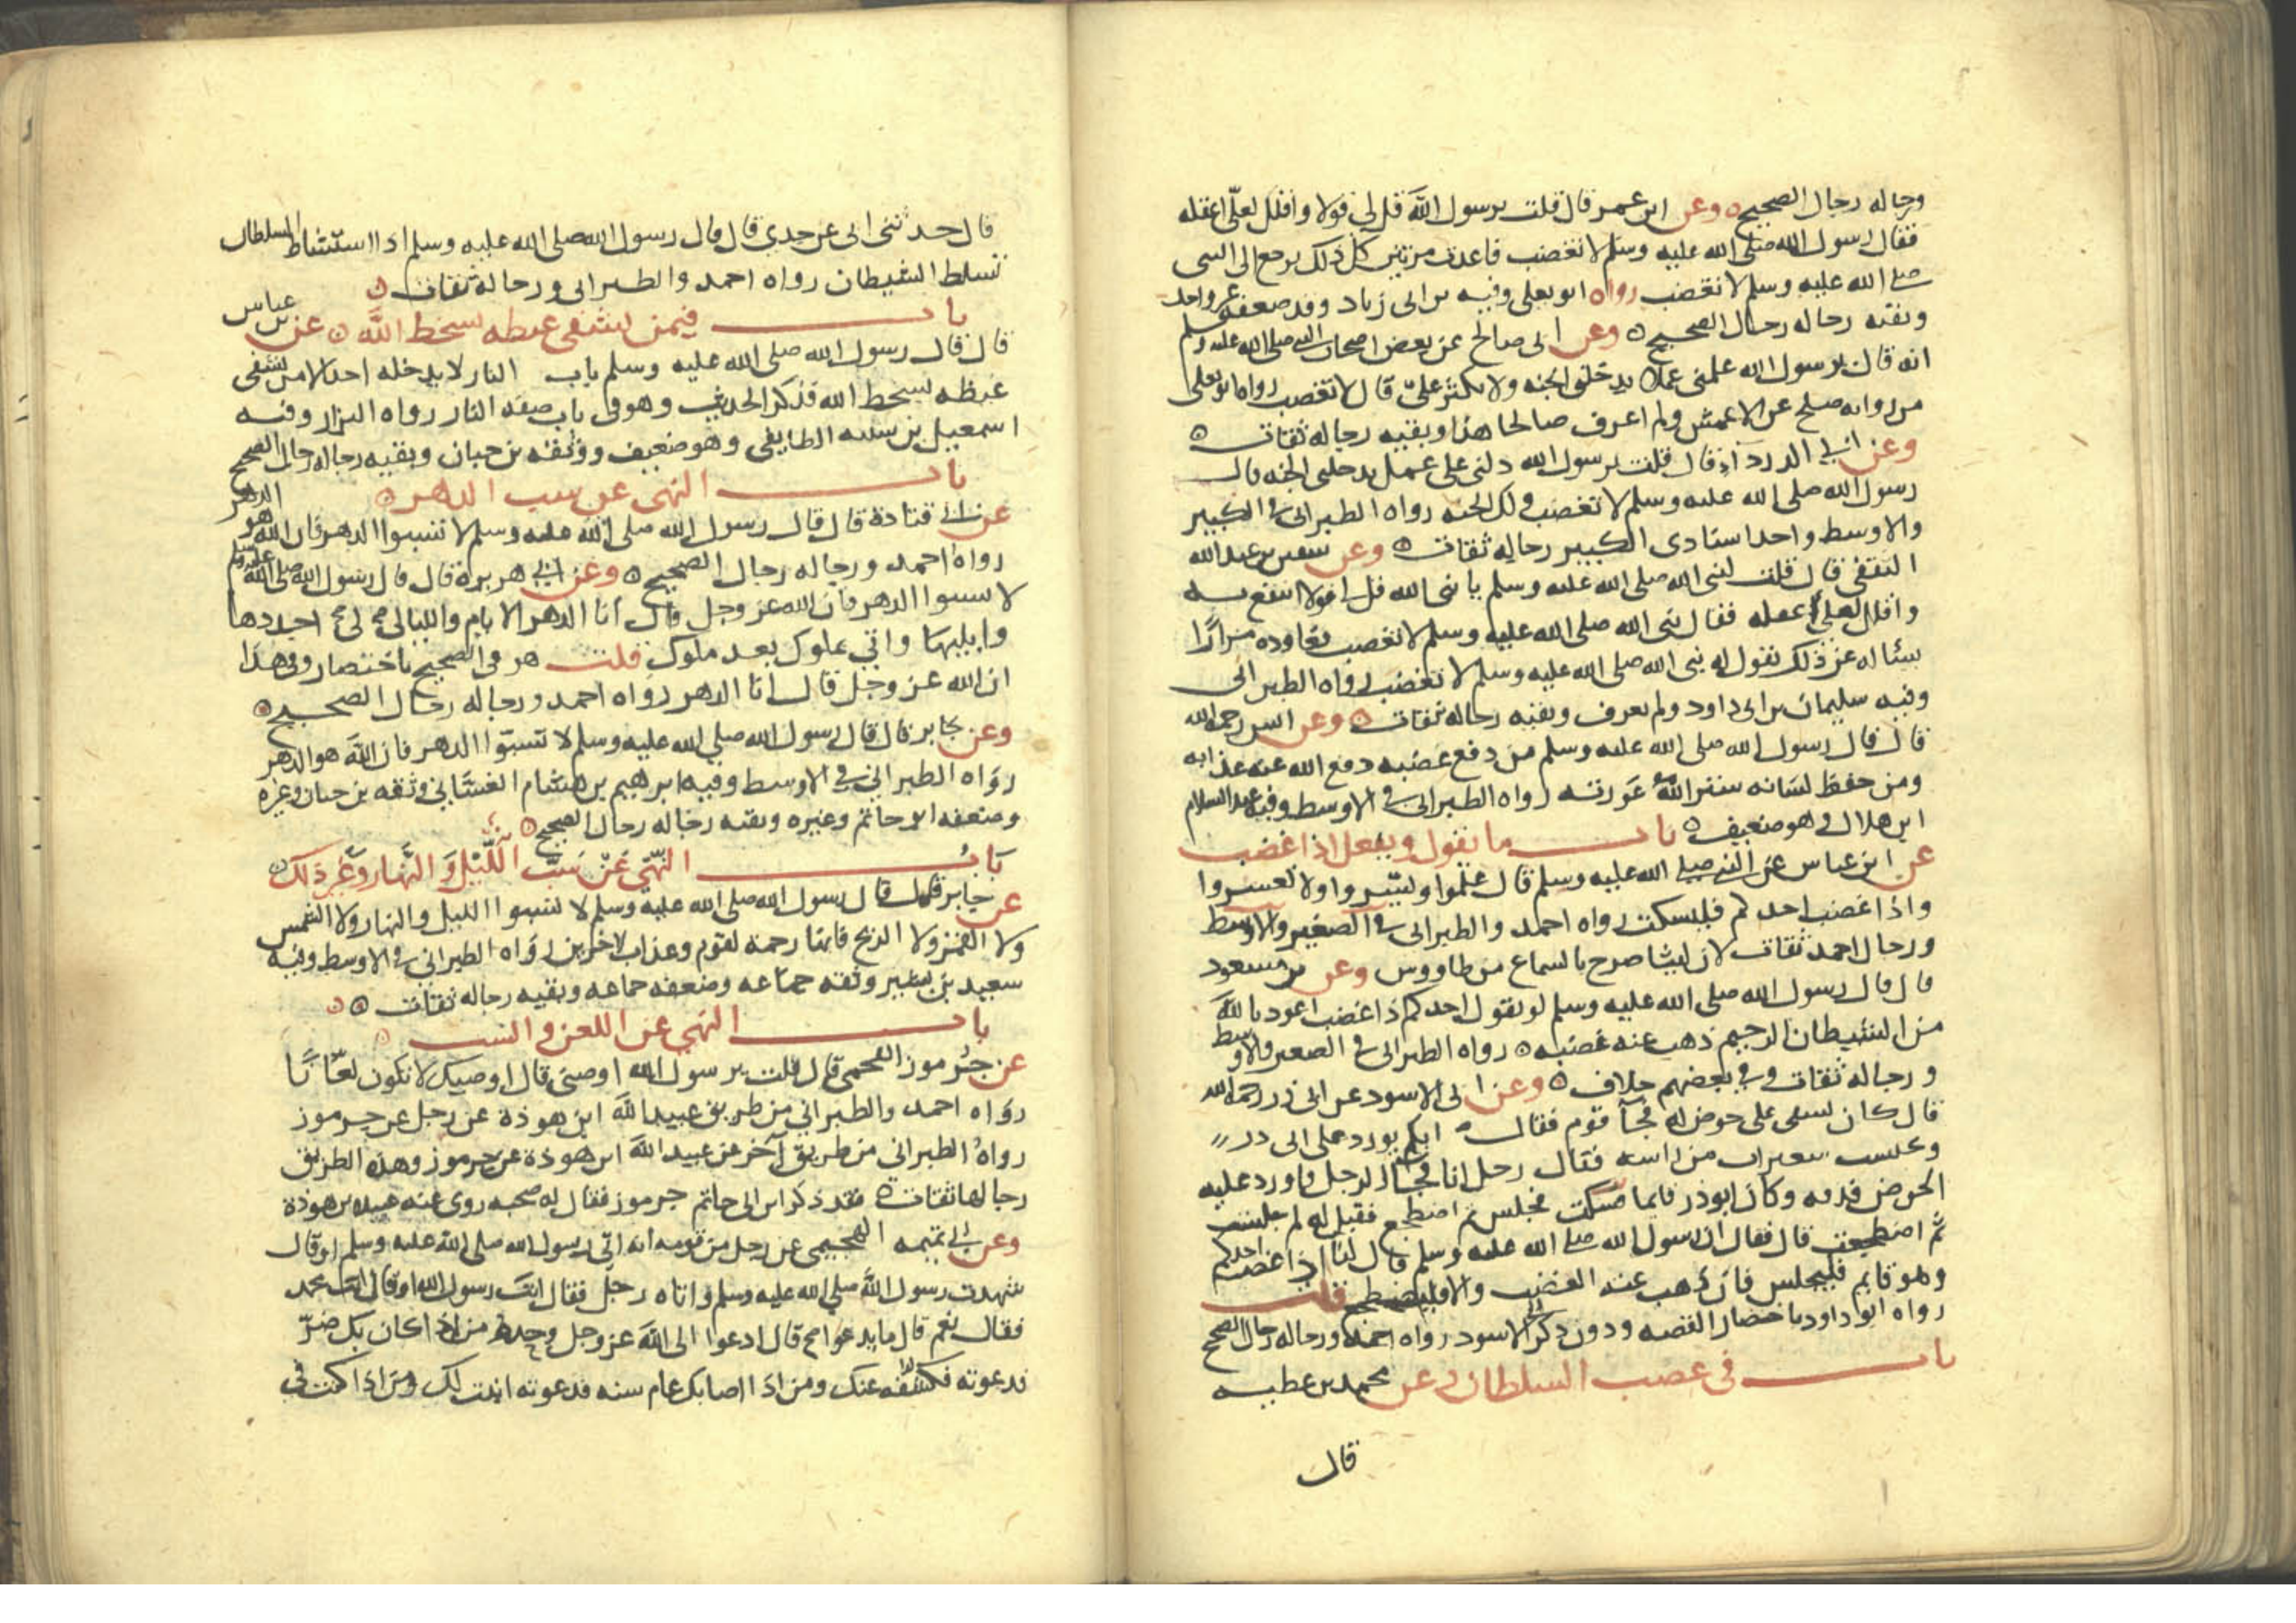 ورجاله رجال الصحيح وعن ابن عمر قال قلت يرسول الله قل لي قولا واقلل لعلّي اعقله
فقال رسول الله صلى الله عليه وسلم لا تغضب فاعدت مرتين كل ذلك يرجع الى النبي
صلى الله عليه وسلم لا تغضب رواه ابو يعلى وفيه بن ابي زناد وقد ضعفه غير واحد
وبقيه رجاله رجال الصحيح وعن ابي صالح عن بعض اصحاب النبي صلى الله عليه وسلم
انه قال يرسول الله علمني عملا يدخلني الجنه ولا تكثر عليّ قال لا تغضب رواه ابو يعلى
من روايه صلح عن الاعمش ولم اعرف صالحا هذا وبقيه رجاله ثقات
وعن ابي الدرداء قال قلت يرسول الله دلني على عمل يدخلني الجنه قال
رسول الله صلى الله عليه وسلم لا تغضب ولك الجنه رواه الطبراني في الكبير
والاوسط واحد اسنادى الكبير رجاله ثقات وعن سفين بن عبد الله
الثقفي قال قلت لنبي الله صلى الله عليه وسلم يا نبي الله قل لي قولا انتفع به
واقلل لعلي اعقله فقال نبي الله صلى الله عليه وسلم لا تغضب فعاوده مرارًا
يسئاله عن ذلك يقول له نبي الله صلى الله عليه وسلم لا تغضب رواه الطبراني
وفيه سليمان بن ابي داود ولم يعرف وبقيه رجاله ثقات وعن انس رحمه الله
قال قال رسول الله صلى الله عليه وسلم من دفع غضبه دفع الله عنه عذابه
ومن حفظ لسانه ستر الله عورته رواه الطبراني في الاوسط وفيه عبد السلام
ابن هلال وهو ضعيف باب ما يقول ويفعل اذا غضب
عن ابن عباس عن النبي صلى الله عليه وسلم قال علموا وليسّروا ولا تعسروا
واذا غضب احدكم فليسكت رواه احمد والطبراني في الصغير والاوسط
ورجال احمد ثقات لان ليثا صرح بالسماع من طاووس وعن بن مسعود
قال قال رسول الله صلى الله عليه وسلم لو يقول احدكم اذا غضب اعوذ بالله
من الشيطان الرجيم ذهب عنه غضبه رواه الطبراني في الصغير والاوسط
ورجاله ثقات وفي بعضهم خلاف وعن ابي الاسود عن ابي ذر رحمه الله
قال كان يسقي على حوض له فجآ قوم فقال ايكم يورد على ابي ذر
ويحتسب شعرات من راسه فقال رجل انا فجآ الرجل فاورد عليه
الحوض فدقه وكان ابو ذر قايما فجلس ثم اضطجع فقيل له لم جلست
ثم اضطجعت قال فقال ان رسول الله صلى الله عليه وسلم قال لنا اذا غضب احدكم
وهو قايم فليجلس فان ذهب عنه الغضب والا فليضطجع قلت
رواه ابو داود باختصار القصه ودون ذكر ابي الاسود رواه احمد ورجاله رجال الصحيح
باب في غضب السلطان عن محمد بن عطيه
قال
قال حدثني ابي عن جدي قال قال رسول الله صلى الله عليه وسلم اذا استشاط السلطان
تسلط الشيطان رواه احمد والطبراني ورجاله ثقات
باب فيمن يشفي غيظه بسخط الله عن بن عباس
قال قال رسول الله صلى الله عليه وسلم باب النار لا يدخله احد الا من يشفي
غيظه بسخط الله فذكر الحديث وهو في باب صفه النار رواه البزار وفيه
اسمعيل بن شيبه الطايفي وهو ضعيف ووثقه بن حبان وبقيه رجاله رجال الصحيح
باب النهى عن سب الدهر
عن ابي قتادة قال قال رسول الله صلى الله عليه وسلم لا تسبوا الدهر فان الله هو الدهر
رواه احمد ورجاله رجال الصحيح وعن ابي هريرة قال قال رسول الله صلى الله عليه وسلم
لا تسبوا الدهر فان الله عز وجل قال انا الدهر الايام والليالي لي اجددها
وابليها واتي بملوك بعد ملوك قلت هو في الصحيح باختصار وفي هذا
ان الله عز وجل قال انا الدهر رواه احمد ورجاله رجال الصحيح
وعن جابر قال قال رسول الله صلى الله عليه وسلم لا تسبّوا الدهر فان الله هو الدهر
رواه الطبراني في الاوسط وفيه ابرهيم بن هشام الغسّاني وثقه بن حبان وغيره
وضعفه ابو حاتم وغيره وبقيه رجاله رجال الصحيح
بابُ النّهي عَنْ سَبّ اللَّيْل وَ النَّهار وَغَيْر ذلك
عن جابر قال قال رسول الله صلى الله عليه وسلم لا تسبوا الليل والنهار ولا الشمس
ولا القمر ولا الريح فانها رحمة لقوم وعذاب لاخرين رواه الطبراني في الاوسط وفيه
سعيد بن بشير وثقه جماعه وضعفه جماعه وبقيه رجاله ثقات
باب النهي عن اللعن والسب
عن جرموز الهجمي قال قلت يرسول الله اوصني قال اوصيك لا تكون لعّانًا
رواه احمد والطبراني من طريق عبيد الله ابن هوذة عن رجل عن جرموز
رواه الطبراني من طريق آخر عن عبيد الله ابن هوذة عن جرموز وهذه الطريق
رجالها ثقات فقد ذكر ابن ابي حاتم جرموز فقال له صحبه روى عنه عبيد بن هوذة
وعن ابي تميمه الهجيمي عن رجل من قومه انه اتى رسول الله صلى الله عليه وسلم او قال
شهدت رسول الله صلى الله عليه وسلم واتاه رجل فقال انت رسول الله او قال انت محمد
فقال نعم قال ما يدعوا قال ادعوا الى الله عز وجل وحده من اذا كان بك ضرّ
فدعوته فكشفه عنك ومن اذا اصابك عام سنه فدعوته انبت لك ومن اذا كنت في